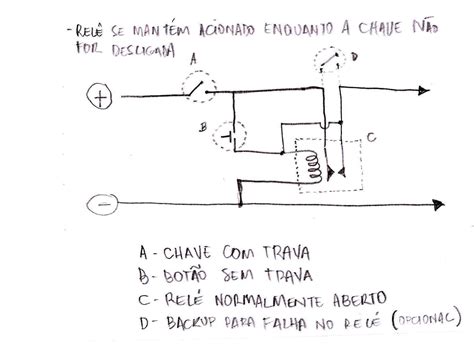 - RELÊ SE MANTÉM ACIONADO ENQUANTO A CHAVE NÃO
FOR DESLIGADA
A
D
+
B
C
-
A - CHAVE COM TRAVA
B - BOTÃO SEM TRAVA
C - RELÉ NORMALMENTE ABERTO
D - BACKUP PARA FALHA NO RELÉ (OPCIONAL)